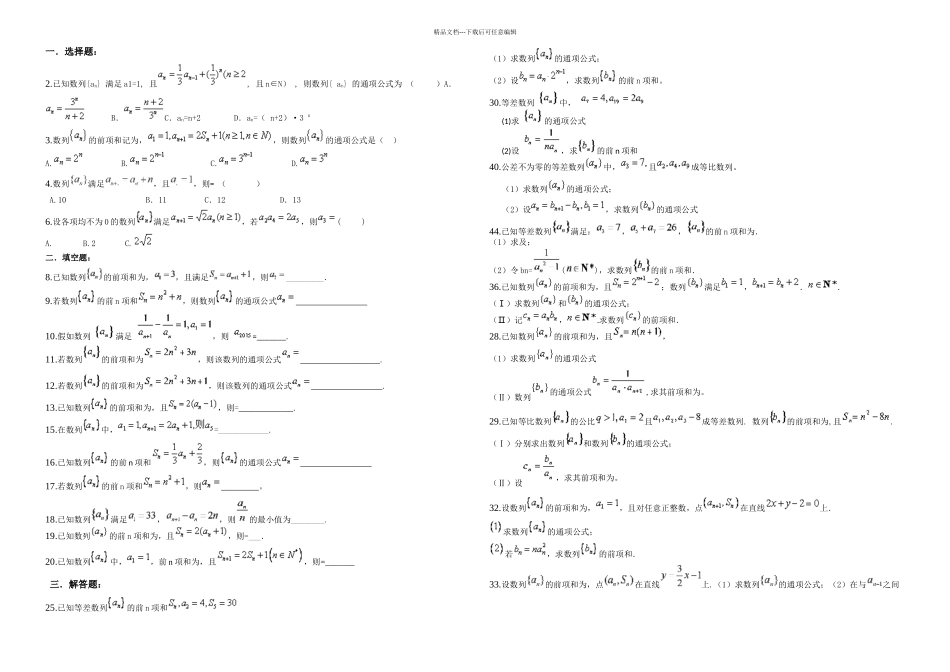 精品文档---下载后可任意编辑
一．选择题：
2.已知数列{aₙ} 满足 a1=1, 且 aₙ = 1/3 aₙ₋₁+(1/3)ⁿ(n≥2 , 且 n∈N) , 则数列{ aₙ} 的通项公式为 （ ）A.
aₙ = 3ⁿ/(n+2) B. aₙ = (n+2)/3ⁿ C. aₙ=n+2 D. aₙ=( n+2)·3ⁿ
3.数列{aₙ}的前项和记为, a₁=1,aₙ₊₁=2Sₙ+1(n≥1,n∈N), 则数列{aₙ}的通项公式是（ ）
A.2ⁿ B.2ⁿ⁻¹ C.3ⁿ⁻¹ D.3ⁿ
4.数列{aₙ}满足aₙ₊. −aₙ+n, 且. −1, 则=（ ）
A.10 B．11 C．12 D．13
6.设各项均为 0 的数列{aₙ}满足aₙ₊₁=√2aₙ(n≥1), 若a₂a₄=2a₅, 则aₙ（ ）
A. B.2 C.2√2
二．填空题：
8.已知数列{aₙ}的前项和为, a₁=3, 且满足Sₙ=aₙ₊₁+1, 则a₇=________.
9.若数列{aₙ}的前 n 项和Sₙ=n²+n, 则数列{aₙ}的通项公式aₙ=________________
10.假如数列 {aₙ} 满足 1/aₙ₊₁ − 1/aₙ = 1,a₁=1, 则 a₂₀₁₅=______.
11.若数列{aₙ}的前项和为Sₙ=2n²+3n, 则该数列的通项公式aₙ=________________.
12.若数列{aₙ}的前项和为Sₙ=2n²+3n+1, 则该数列的通项公式aₙ=________________.
13.已知数列{aₙ}的前项和为, 且Sₙ=2(aₙ−1), 则=____________.
15.在数列{aₙ}中, a₁=1,aₙ₊₁=2aₙ+1,则a₅=__________.
16.已知数列{aₙ}的前 n 项和 Sₙ=1/3 aₙ+2/3, 则{aₙ}的通项公式aₙ=________________
17.若数列{aₙ}的前 n 项和Sₙ=n²+1, 则aₙ=________.
18.已知数列{aₙ}满足a₁=33, aₙ₊₁−aₙ=2n, 则 aₙ/n 的最小值为________.
19.已知数列{aₙ}的前 n 项和为, 且Sₙ=2(aₙ+1), 则=___.
20.已知数列{aₙ}中, a₁=1, 前 n 项和为, 且aₙ₊₁=2Sₙ+1(n∈N*), 则=______
三．解答题：
25.已知等差数列{aₙ}的前 n 项和Sₙ,a₂=4,S₅=30
（1）求数列{aₙ}的通项公式；
（2）设bₙ=aₙ·2ⁿ⁻¹, 求数列{bₙ}的前 n 项和。
30.等差数列 {aₙ} 中, a₇=4,a₁₉=2a₉
⑴求 {aₙ} 的通项公式
⑵设 bₙ=1/(naₙ), 求{bₙ}的前 n 项和
40.公差不为零的等差数列{aₙ}中, a₃=7, 且a₂,a₄,a₉成等比数列。
（1）求数列{aₙ}的通项公式；
（2）设aₙ=bₙ₊₁−bₙ,b₁=1, 求数列{bₙ}的通项公式
44.已知等差数列{aₙ}满足: a₃=7, a₅+a₇=26, {aₙ}的前 n 项和为.
（1）求及；
（2）令 bn=1/(aₙ²−1)(n∈N*), 求数列{bₙ}的前 n 项和.
36.已知数列{aₙ}的前项和为, 且Sₙ=2ⁿ⁺¹−2; 数列{bₙ}满足b₁=1, bₙ₊₁=bₙ+2. n∈N*.
（Ⅰ）求数列{aₙ}和{bₙ}的通项公式；
（Ⅱ）记cₙ=aₙbₙ, n∈N*.求数列{cₙ}的前项和.
28.已知数列{aₙ}的前项和为, 且Sₙ=n(n+1),
（1）求数列{aₙ}的通项公式
（Ⅱ）数列{bₙ}的通项公式bₙ=1/(aₙ·aₙ₊₁), 求其前项和为。
29.已知等比数列{aₙ}的公比q>1,a₁=2且a₁,a₂,a₃−8成等差数列. 数列{bₙ}的前项和为,且Sₙ=n²−8n.
（Ⅰ）分别求出数列{aₙ}和数列{bₙ}的通项公式；
（Ⅱ）设cₙ=bₙ/aₙ, 求其前项和为。
32.设数列{aₙ}的前项和为, a₁=1, 且对任意正整数, 点(aₙ₊₁,Sₙ)在直线2x+y−2=0上.
(1)求数列{aₙ}的通项公式;
(2)若bₙ=naₙ², 求数列{bₙ}的前项和.
33.设数列{aₙ}的前项和为, 点(aₙ,Sₙ)在直线y=3/2 x−1上.（1）求数列{aₙ}的通项公式；（2）在与aₙ₊₁之间